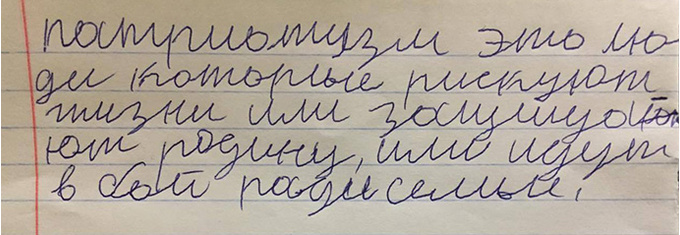 патриотизм это лю
ди которые рискуют
жизни или защища
ют родину, или идут
в бой ради семьи.